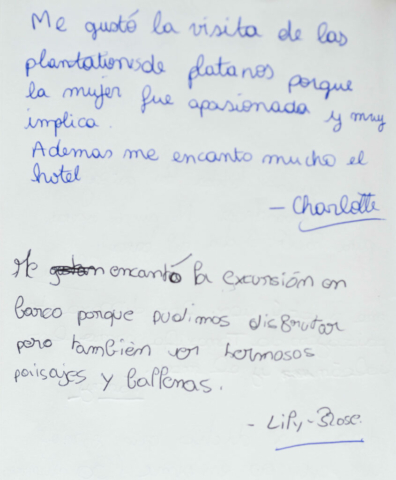 Me gustó la visita de las
plantationsde platanos porque
la mujer fue apasionada y muy
implica.
Ademas me encanto mucho el
hotel
- Charlotte
Me encantó la excursión en
barco porque pudimos disfrutar
pero también ver hermosos
paisajes y ballenas.
- Lily-Rose.